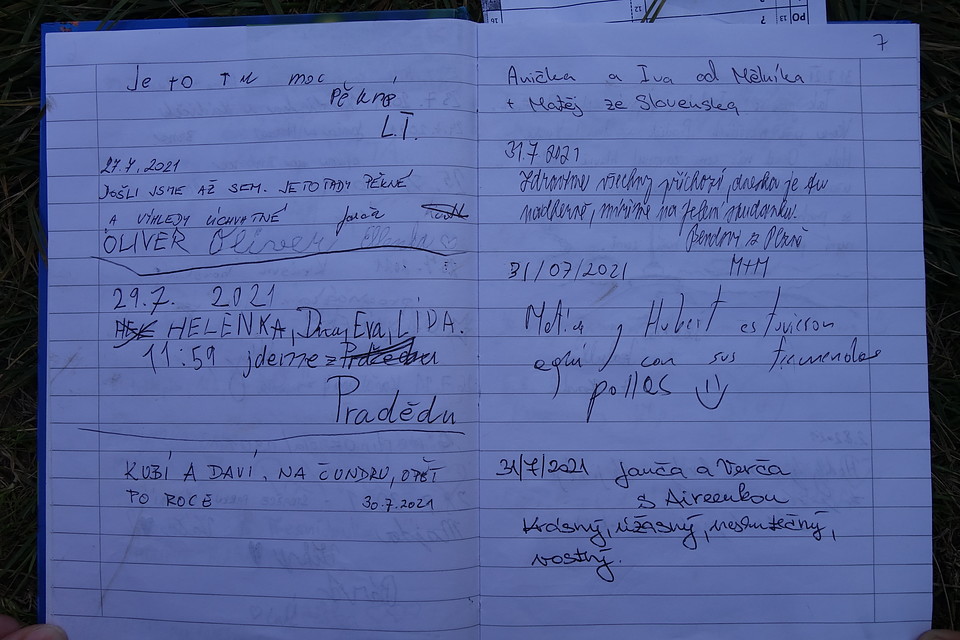 Je to tu moc
pěkné
L.T.
27.7.2021
DOŠLI JSME AŽ SEM. JE TO TADY PĚKNÉ
A VÝHLEDY ÚCHVATNÉ Janča
OLIVER Oliver
29.7. 2021
HELENKA, Dana, Eva, LÍDA.
11:59 jdeme z
Pradědu
KUBÍ A DAVÍ, NA ČUNDRU, OPĚT
PO ROCE 30.7.2021
7
Anička a Iva od Mělníka
+ Matěj ze Slovenska
31.7 2021
Zdravíme všechny příchozí, dneska je tu
nádherně, míříme na Jelení studánku!
Bendovi z Plzně
M+M
31/07/2021
y Hubert estuvieron
aquí con sus tremendas
pollas
31/7/2021 Janča a Verča
s Aireenkou
Krásný, úžasný, neskutečný,
vostrý.
PO 13
12
16